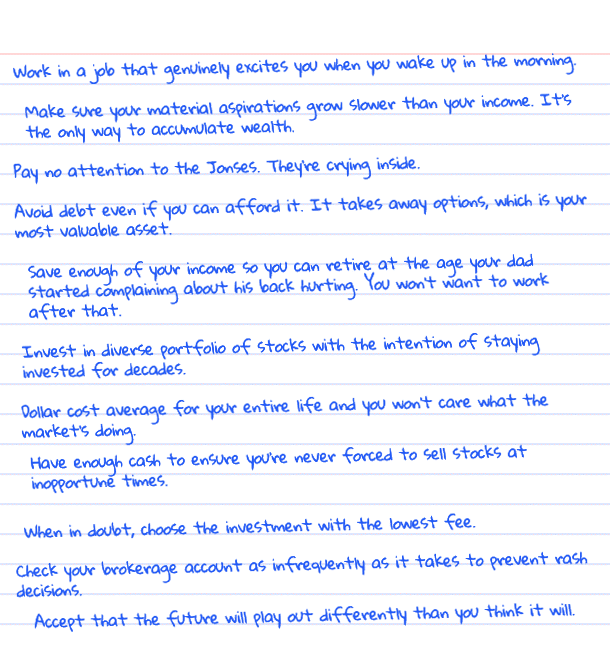 Work in a job that genuinely excites you when you wake up in the morning.
Make sure your material aspirations grow slower than your income. It's
the only way to accumulate wealth.
Pay no attention to the Jonses. They're crying inside.
Avoid debt even if you can afford it. It takes away options, which is your
most valuable asset.
Save enough of your income so you can retire at the age your dad
started complaining about his back hurting. You won't want to work
after that.
Invest in diverse portfolio of stocks with the intention of staying
invested for decades.
Dollar cost average for your entire life and you won't care what the
market's doing.
Have enough cash to ensure you're never forced to sell stocks at
inopportune times.
When in doubt, choose the investment with the lowest fee.
Check your brokerage account as infrequently as it takes to prevent rash
decisions.
Accept that the future will play out differently than you think it will.